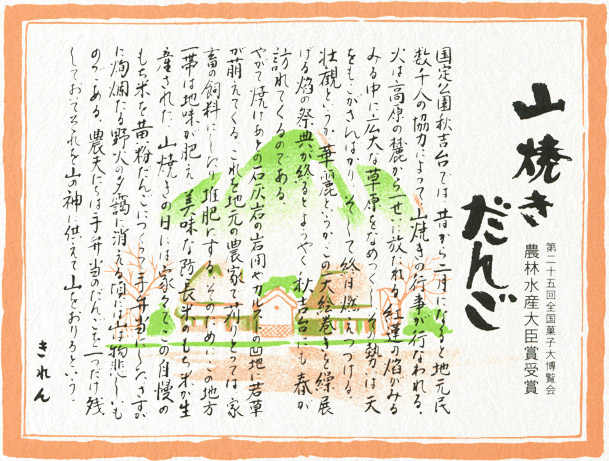 山焼き
だんご
第二十五回全国菓子大博覧会
農林水産大臣賞受賞
国定公園秋吉台では、昔から二月になると地元民
数千人の協力によって、山焼きの行事が行なわれる。
火は高原の麓から一せいに放たれる紅蓮の焔がみる
みる中に広大な草原をなめつくし、その勢は天
をもこがさんばかり、そして終日燃えつづける。
壮観というか、華麗というか、この大絵巻きを繰展
げる焔の祭典が終るとようやく秋吉台にも春が
訪れてくるのである。
やがて焼けあとの石灰岩の岩間やカルストの凹地に若草
が萠えてくる。これを地元の農家で苅りとっては家
畜の飼料にしたり堆肥にする。そのためにこの地方
一帯は地味が肥え、美味な防長米のもち米が生
産された。山焼きの日には家々でこの自慢の
もち米を黄粉だんごにつくり手弁当にしたさずか
に絢爛たる野火の夕靄に消える頃には山は物悲しいも
のである。農夫たちは手弁当のだんごを一つだけ残
しておいてそれを山の神に供えて山をおりるという。
きれん